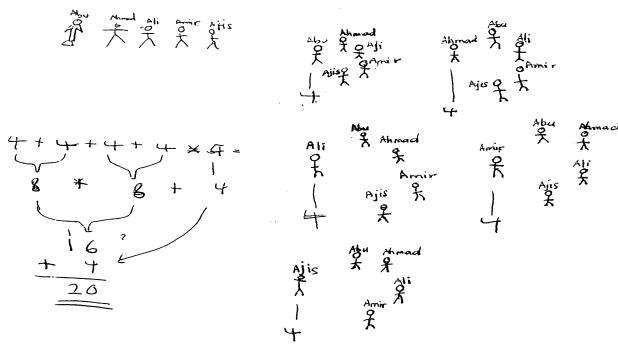 Abu Ahmad Ali Amir Ajis
4 + 4 + 4 + 4 * 4 =
8 * 8 + 4
16 ?
+ 4
20
Abu Ahmad Ali
Ajis Amir
4
Ahmad Abu Ali
Amir
Ajis
4
Ali Abu Ahmad
Amir
Ajis
4
Amir Abu Ahmad
Ali
Ajis
4
Ajis Abu Ahmad
Ali
Amir
4